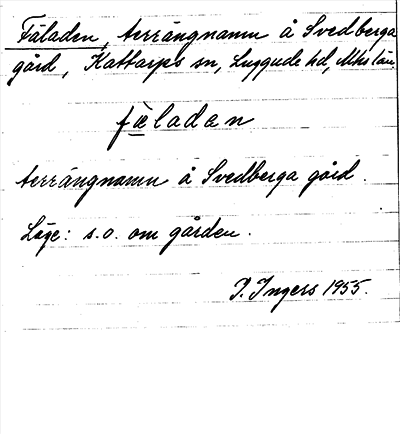 Fäladen, terrängnamn å Svedberga
gård, Kattarps sn, Luggude hd, Mhs län.
fæladan
terrängnamn å Svedberga gård.
Läge: s.o. om gården.
I. Ingers 1955.